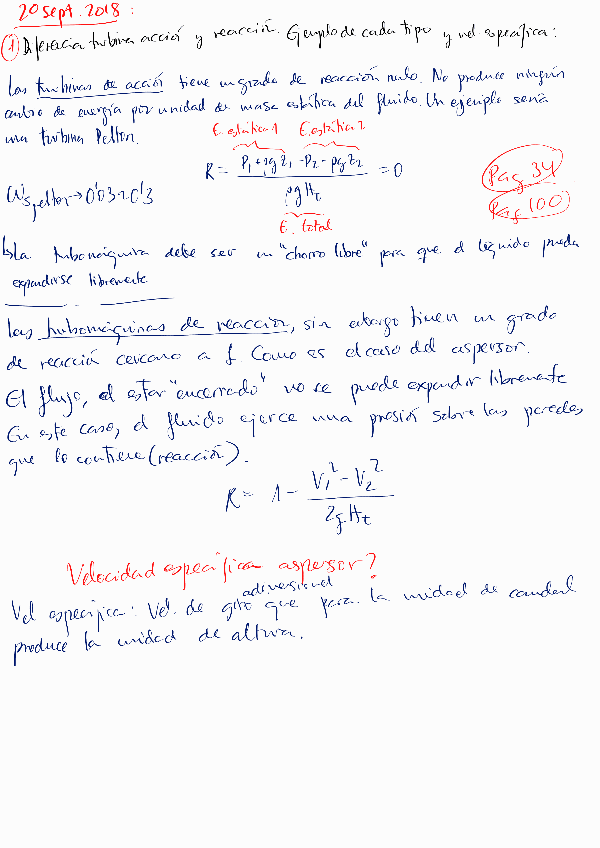 20 sept. 2018:
① Diferencia turbina acción y reacción. Ejemplo de cada tipo y vel específica:
Las turbinas de acción tiene un grado de reacción nulo. No produce ningún
cambio de energía por unidad de masa estática del fluido. Un ejemplo sería
una turbina Pelton.
E. estática 1 E. estática 2
R = (P₁ + ρgZ₁ - P₂ - ρgZ₂) / (ρgHt) = 0
E. total
Pag 34
Pag 100
Ws pelton → 0'03 ÷ 0'3
La turbomáquina debe ser un "chorro libre" para que el líquido pueda
expandirse libremente
Las turbomáquinas de reacción, sin embargo tienen un grado
de reacción cercano a 1. Como es el caso del aspersor.
El flujo, al estar "encerrado" no se puede expandir libremente
En este caso, el fluido ejerce una presión sobre las paredes
que lo contiene (reacción).
R = 1 - (V₁² - V₂²) / (2gHt)
Velocidad específica aspersor?
adimensional
Vel específica: Vel. de giro que para la unidad de caudal
produce la unidad de altura.